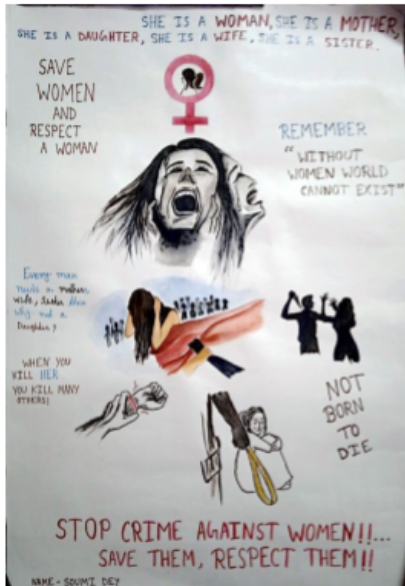 SHE IS A WOMAN, SHE IS A MOTHER,
SHE IS A DAUGHTER, SHE IS A WIFE, SHE IS A SISTER.
SAVE
WOMEN
AND
RESPECT
A WOMAN
REMEMBER
"WITHOUT
WOMEN WORLD
CANNOT EXIST"
Every man
needs a mother,
wife, sister then
why not a
Daughter?
WHEN YOU
KILL HER
YOU KILL MANY
OTHERS!
NOT
BORN
TO
DIE
STOP CRIME AGAINST WOMEN!!...
SAVE THEM, RESPECT THEM!!
NAME - SOUMI DEY